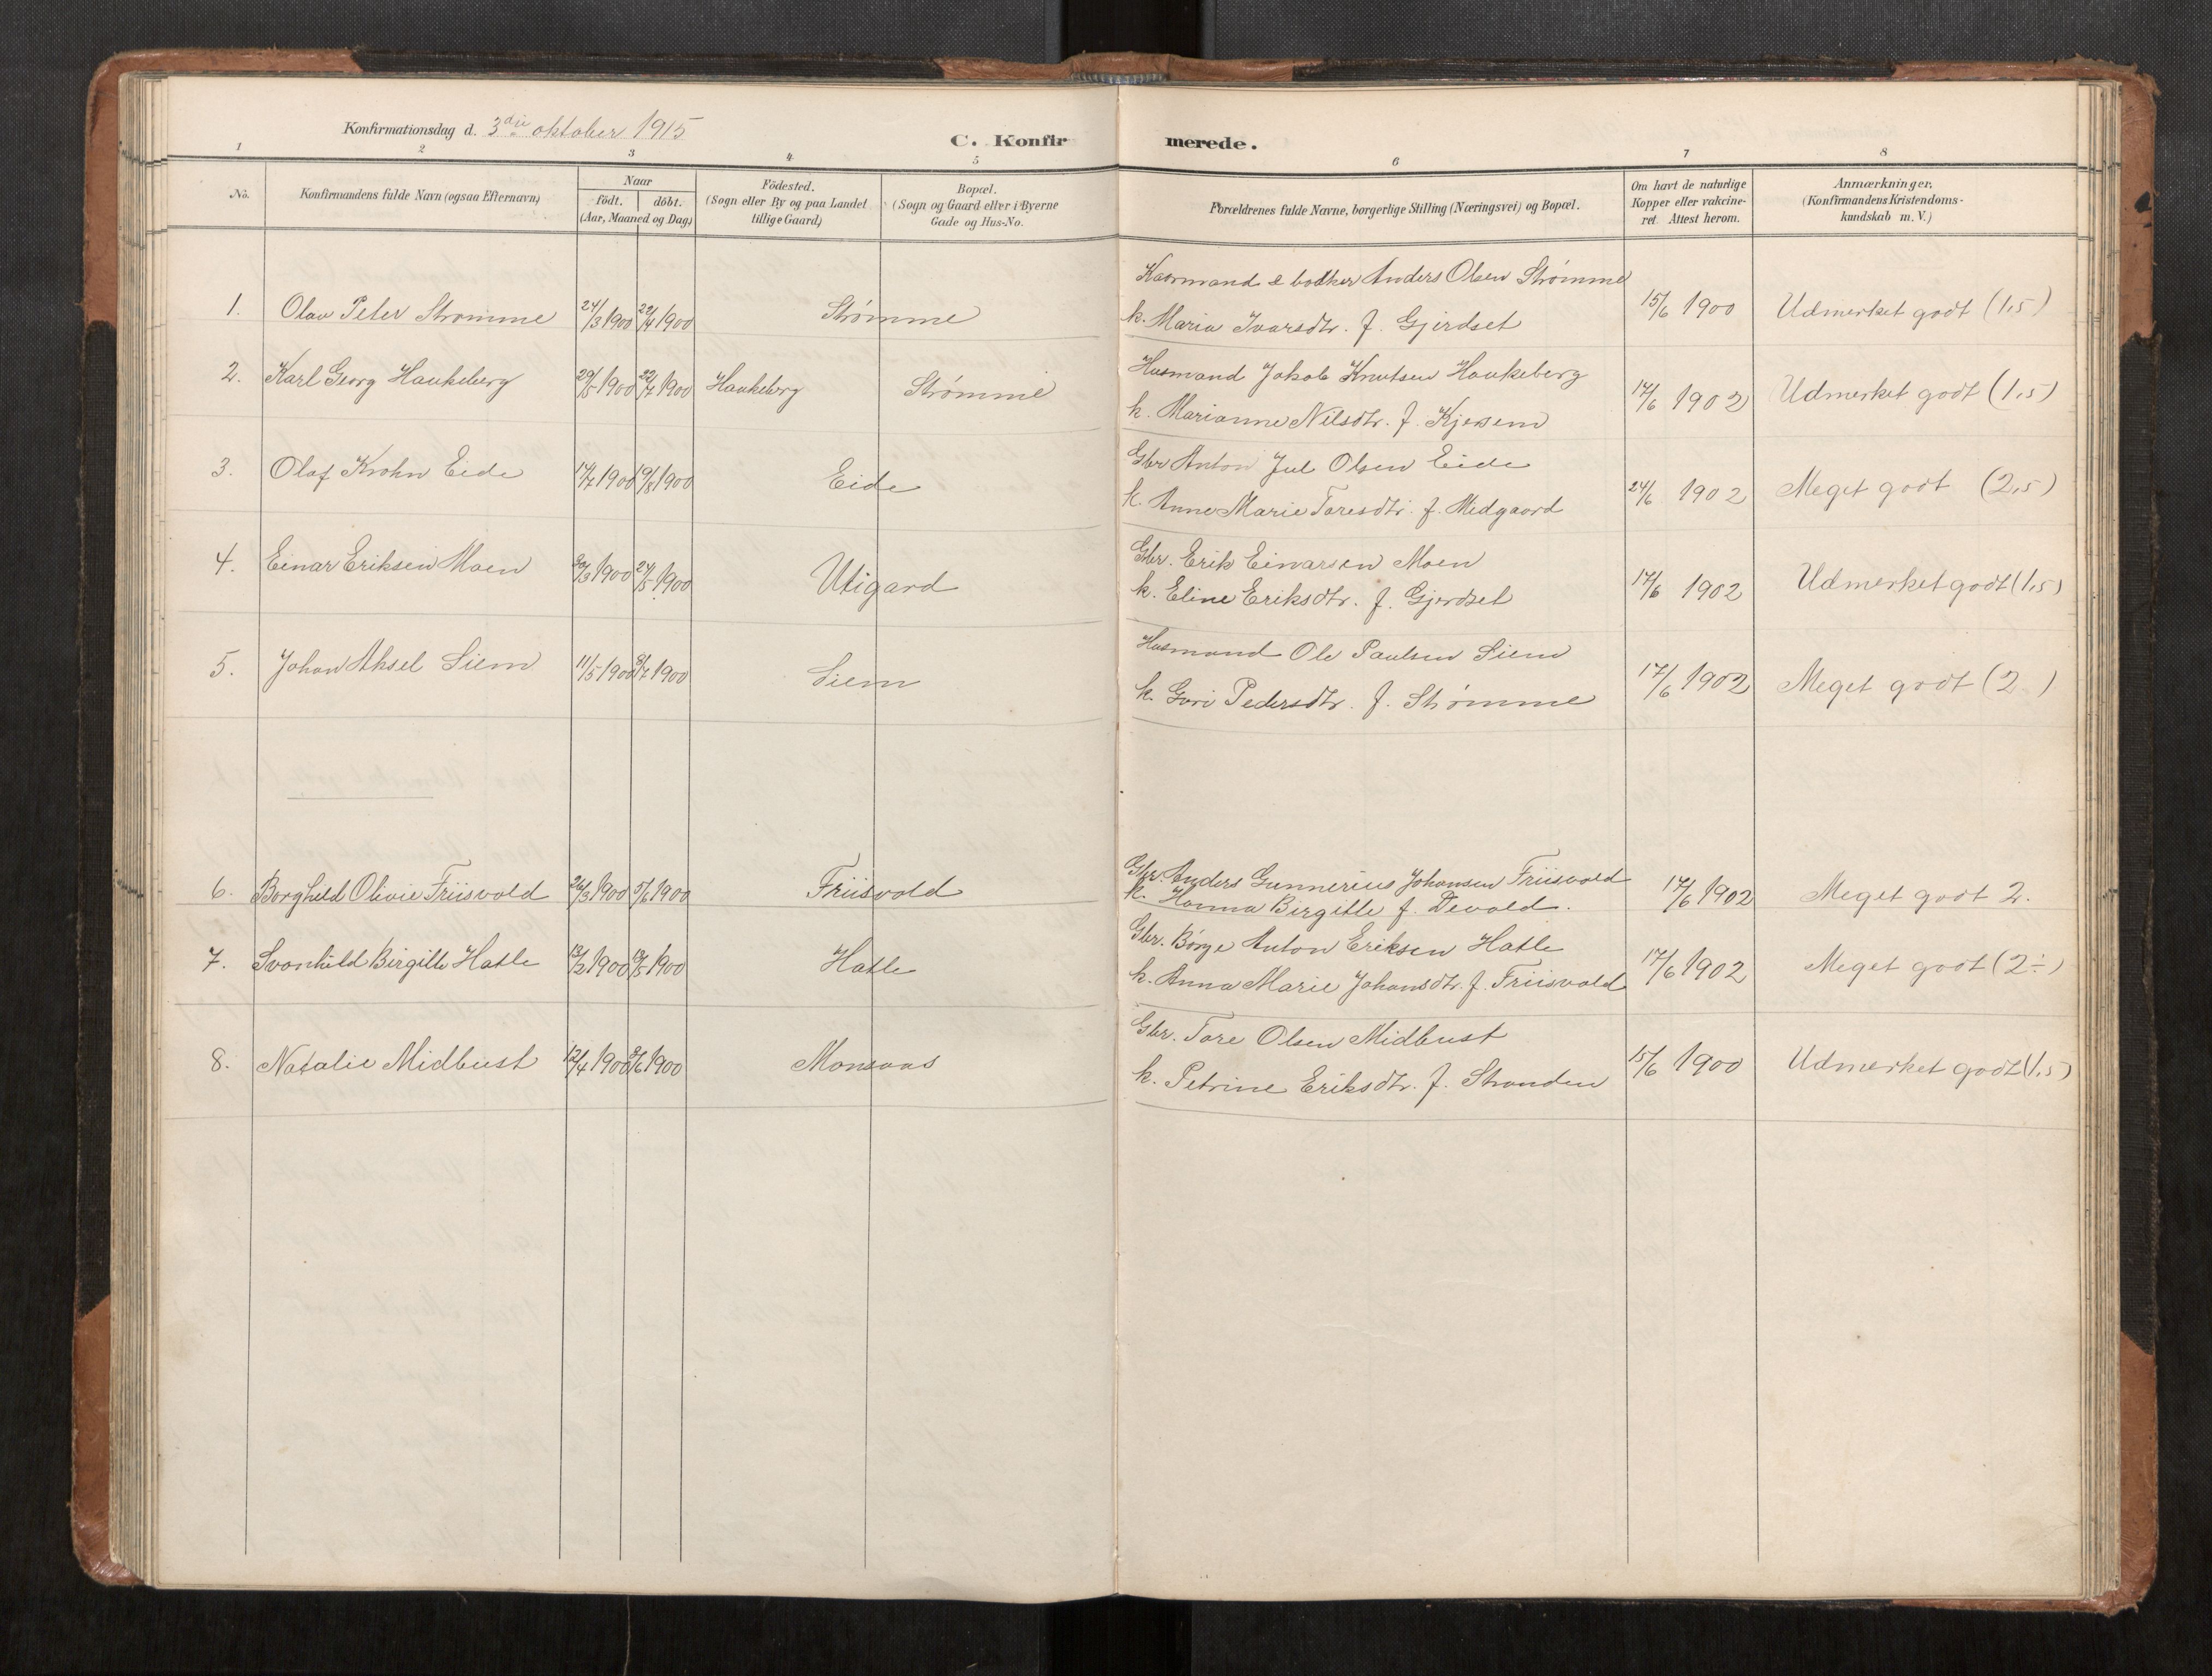 Konfirmationsdag d. 3die oktober 1915
C. Konfirmerede.
1 2 3 4 5 6 7 8
No.
Konfirmandens fulde Navn (ogsaa Efternavn)
Naar
födt. döbt.
(Aar, Maaned og Dag)
Födested.
(Sogn eller By og paa Landet
tillige Gaard)
Bopæl.
(Sogn og Gaard eller i Byerne
Gade og Hus-No.
Forældrenes fulde Navne, borgerlige Stilling (Næringsvei) og Bopæl.
Om havt de naturlige
Kopper eller vakcine-
ret. Attest herom.
Anmærkninger.
(Konfirmandens Kristendoms-
kundskab m. V.)
Kaarmand & bødker Anders Olsen Strømme
1. Olav Peter Strømme 24/3 1900 22/4 1900 Strømme
k. Maria Ivarsdtr. f. Gjerdset 15/6 1900 Udmerket godt (1,5)
2. Karl Georg Haukeberg 29/5 1900 22/7 1900 Haukeberg Strømme
Husmand Jakob Knutsen Haukeberg
k. Marianne Nilsdtr. f. Kjersem 17/6 1902 Udmerket godt (1,5)
3. Olaf Krohn Eide 14/7 1900 19/8 1900 Eide
Gbr Anton Jul Olsen Eide
k. Anne Marie Toresdtr. f. Midgaard 24/6 1902 Meget godt (2,5)
4. Einar Eriksen Moen 30/3 1900 24/5 1900 Utigard
Gbr. Erik Einarsen Moen
k. Eline Eriksdtr. f. Gjerdset 17/6 1902 Udmerket godt (1,5)
5. Johan Aksel Siem 11/5 1900 8/7 1900 Siem
Husmand Ole Paulsen Siem
k. Guri Pedersdtr. f. Strømme 17/6 1902 Meget godt (2 )
6. Borghild Olivie Friisvold 26/3 1900 5/6 1900 Friisvold
Gbr. Anders Gunnerius Johansen Friisvold
k. Hanna Birgitte f. Devold. 17/6 1902 Meget godt 2.
7. Svanhild Birgitte Hatle 13/2 1900 13/5 1900 Hatle
Gbr. Börge Anton Eriksen Hatle
k. Anna Marie Johansdtr. f. Friisvold 17/6 1902 Meget godt (2÷)
8. Natalie Midbust 12/4 1900 3/6 1900 Monsaas
Gbr. Tore Olsen Midbust
k. Petrine Eriksdtr. f. Stranden 15/6 1900 Udmerket godt (1,5)